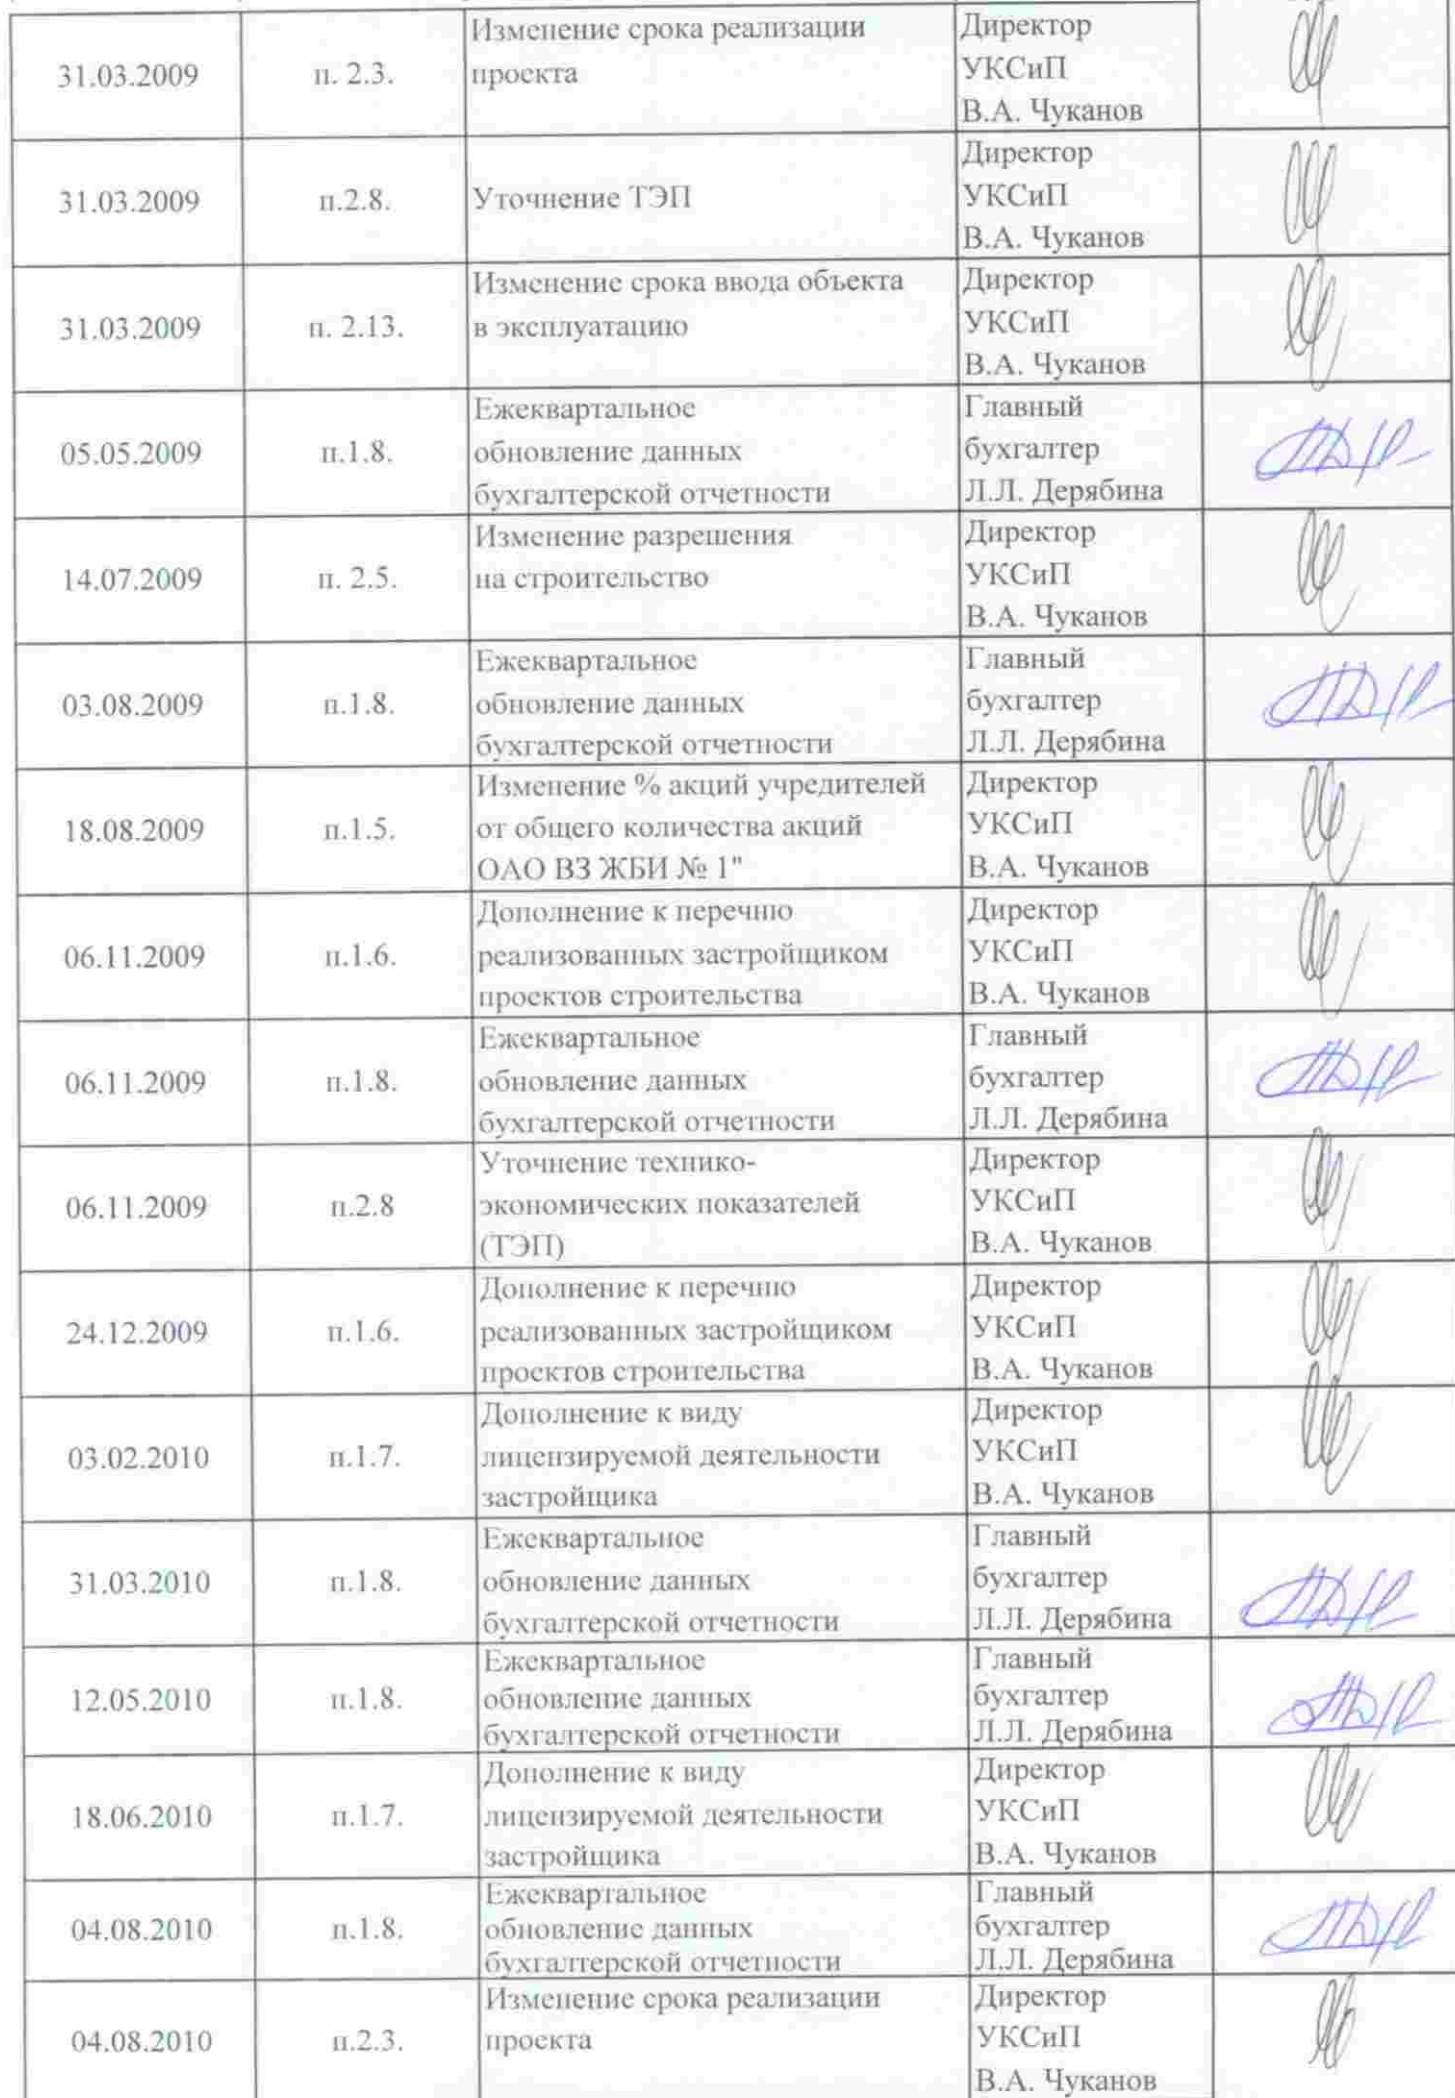 31.03.2009
п. 2.3.
Изменение срока реализации
проекта
Директор
УКСиП
В.А. Чуканов
31.03.2009
п.2.8.
Уточнение ТЭП
Директор
УКСиП
В.А. Чуканов
31.03.2009
п. 2.13.
Изменение срока ввода объекта
в эксплуатацию
Директор
УКСиП
В.А. Чуканов
05.05.2009
п.1.8.
Ежеквартальное
обновление данных
бухгалтерской отчетности
Главный
бухгалтер
Л.Л. Дерябина
14.07.2009
п. 2.5.
Изменение разрешения
на строительство
Директор
УКСиП
В.А. Чуканов
03.08.2009
п.1.8.
Ежеквартальное
обновление данных
бухгалтерской отчетности
Главный
бухгалтер
Л.Л. Дерябина
18.08.2009
п.1.5.
Изменение % акций учредителей
от общего количества акций
ОАО ВЗ ЖБИ № 1"
Директор
УКСиП
В.А. Чуканов
06.11.2009
п.1.6.
Дополнение к перечню
реализованных застройщиком
проектов строительства
Директор
УКСиП
В.А. Чуканов
06.11.2009
п.1.8.
Ежеквартальное
обновление данных
бухгалтерской отчетности
Главный
бухгалтер
Л.Л. Дерябина
06.11.2009
п.2.8
Уточнение технико-
экономических показателей
(ТЭП)
Директор
УКСиП
В.А. Чуканов
24.12.2009
п.1.6.
Дополнение к перечню
реализованных застройщиком
проектов строительства
Директор
УКСиП
В.А. Чуканов
03.02.2010
п.1.7.
Дополнение к виду
лицензируемой деятельности
застройщика
Директор
УКСиП
В.А. Чуканов
31.03.2010
п.1.8.
Ежеквартальное
обновление данных
бухгалтерской отчетности
Главный
бухгалтер
Л.Л. Дерябина
12.05.2010
п.1.8.
Ежеквартальное
обновление данных
бухгалтерской отчетности
Главный
бухгалтер
Л.Л. Дерябина
18.06.2010
п.1.7.
Дополнение к виду
лицензируемой деятельности
застройщика
Директор
УКСиП
В.А. Чуканов
04.08.2010
п.1.8.
Ежеквартальное
обновление данных
бухгалтерской отчетности
Главный
бухгалтер
Л.Л. Дерябина
04.08.2010
п.2.3.
Изменение срока реализации
проекта
Директор
УКСиП
В.А. Чуканов